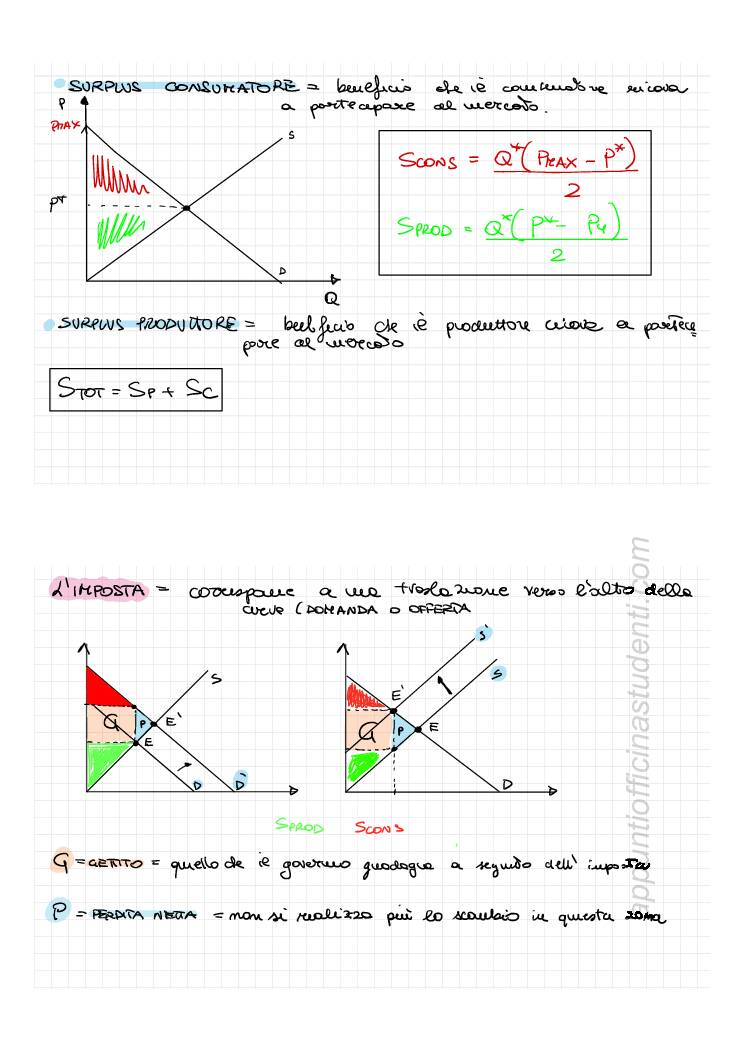 SURPLUS CONSUMATORE = beneficio che il consumatore ricava
a partecipare al mercato.
P
PMAX
S
P*
D
Q
SCONS = Q*(PMAX - P*)
2
SPROD = Q*(P* -
2
SURPLUS PRODUTTORE = beneficio che il produttore ricava a partec
pare al mercato
STOT = SP + SC
L'IMPOSTA = corrisponde a una traslazione verso l'alto della
curve (DOMANDA O OFFERTA
S
G
P
E'
E
D
D'
S'
S
E'
G
P
E
D
SPROD SCONS
G = GETTITO = quello che il governo guadagna a seguito dell' imposta
P = PERDITA NETTA = non si realizza più lo scambio in questa zona
appuntiofficinastudenti.com